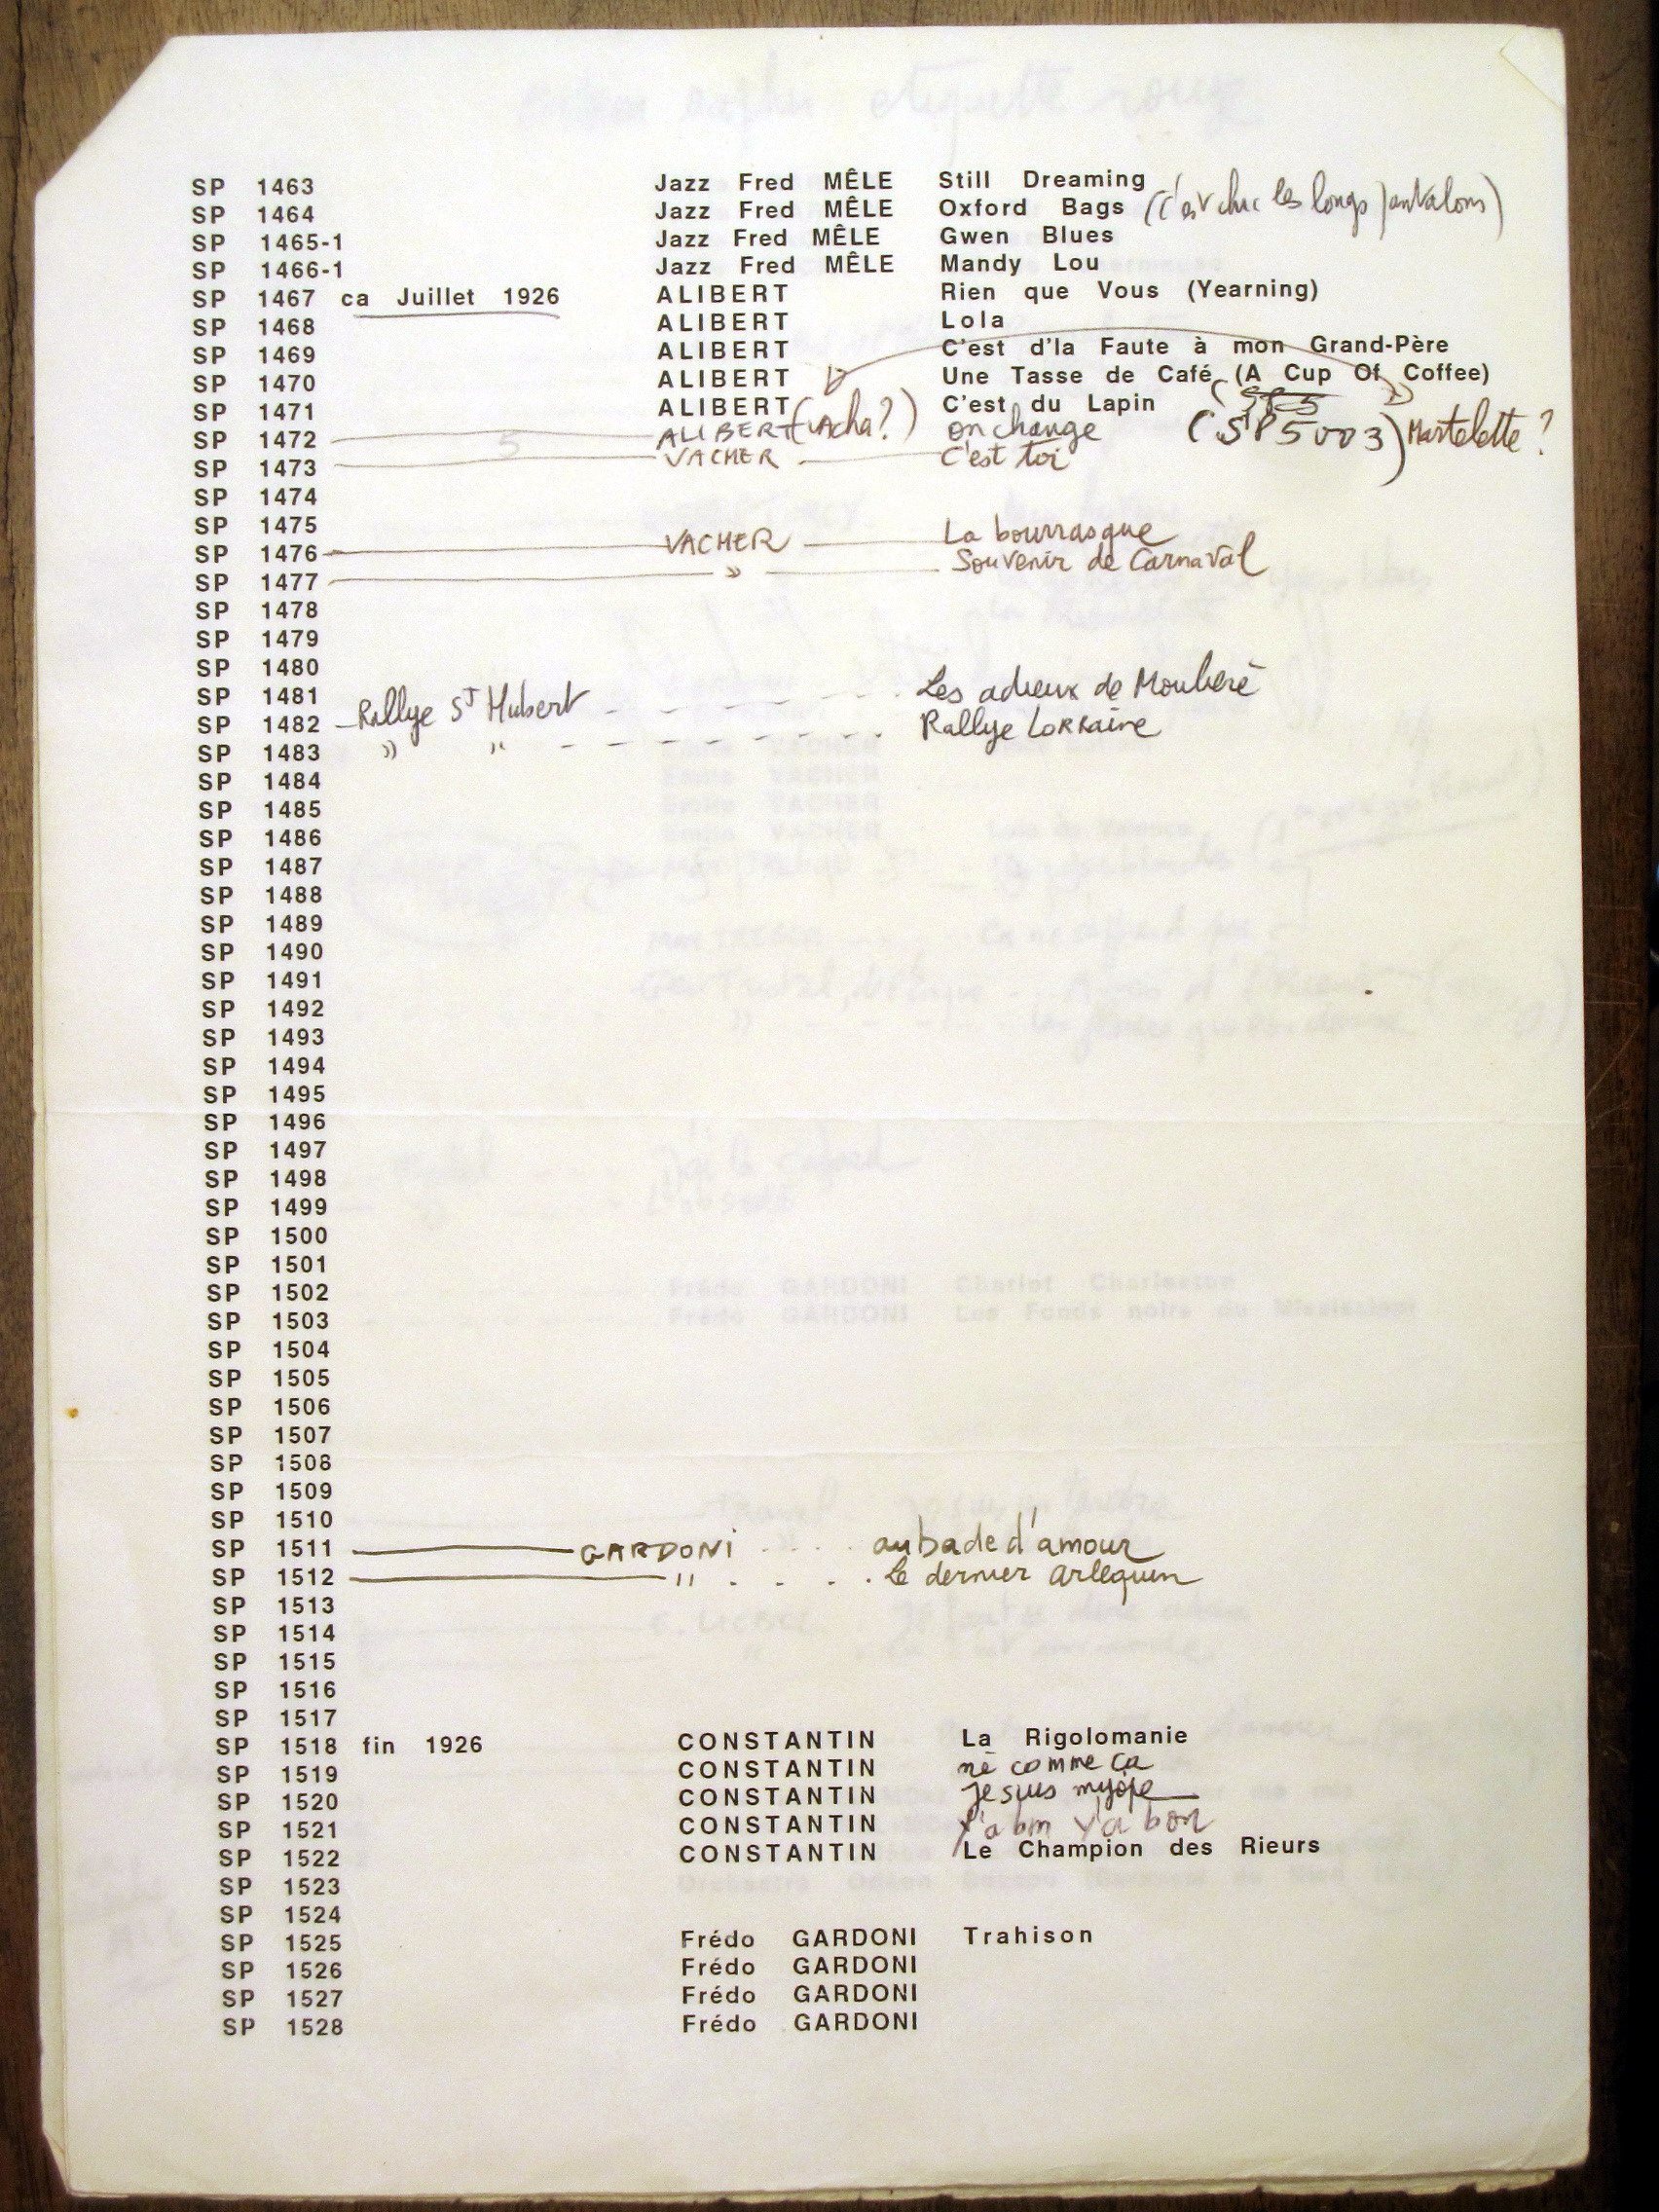 SP 1463 Jazz Fred MÊLE Still Dreaming
SP 1464 Jazz Fred MÊLE Oxford Bags (c'est chic les longs pantalons)
SP 1465-1 Jazz Fred MÊLE Gwen Blues
SP 1466-1 Jazz Fred MÊLE Mandy Lou
SP 1467 ca Juillet 1926 ALIBERT Rien que Vous (Yearning)
SP 1468 ALIBERT Lola
SP 1469 ALIBERT C'est d'la Faute à mon Grand-Père
SP 1470 ALIBERT Une Tasse de Café (A Cup Of Coffee)
SP 1471 ALIBERT C'est du Lapin
SP 1472 ALIBERT (Vacha?) on change (SP 5003) Martelette?
SP 1473 5 VACHER C'est toi
SP 1474
SP 1475
SP 1476 VACHER La bourrasque
SP 1477 " Souvenir de Carnaval
SP 1478
SP 1479
SP 1480
SP 1481
SP 1482 Rallye St Hubert Les adieux de
SP 1483 " " Rallye Lorraine
SP 1484
SP 1485
SP 1486
SP 1487
SP 1488
SP 1489
SP 1490
SP 1491
SP 1492
SP 1493
SP 1494
SP 1495
SP 1496
SP 1497
SP 1498
SP 1499
SP 1500
SP 1501
SP 1502
SP 1503
SP 1504
SP 1505
SP 1506
SP 1507
SP 1508
SP 1509
SP 1510
SP 1511 GARDONI aubade d'amour
SP 1512 " Le dernier Arlequin
SP 1513
SP 1514
SP 1515
SP 1516
SP 1517
SP 1518 fin 1926 CONSTANTIN La Rigolomanie
SP 1519 CONSTANTIN né comme ça
SP 1520 CONSTANTIN je suis myope
SP 1521 CONSTANTIN Y'a bon Y'a bon
SP 1522 CONSTANTIN Le Champion des Rieurs
SP 1523
SP 1524
SP 1525 Frédo GARDONI Trahison
SP 1526 Frédo GARDONI
SP 1527 Frédo GARDONI
SP 1528 Frédo GARDONI